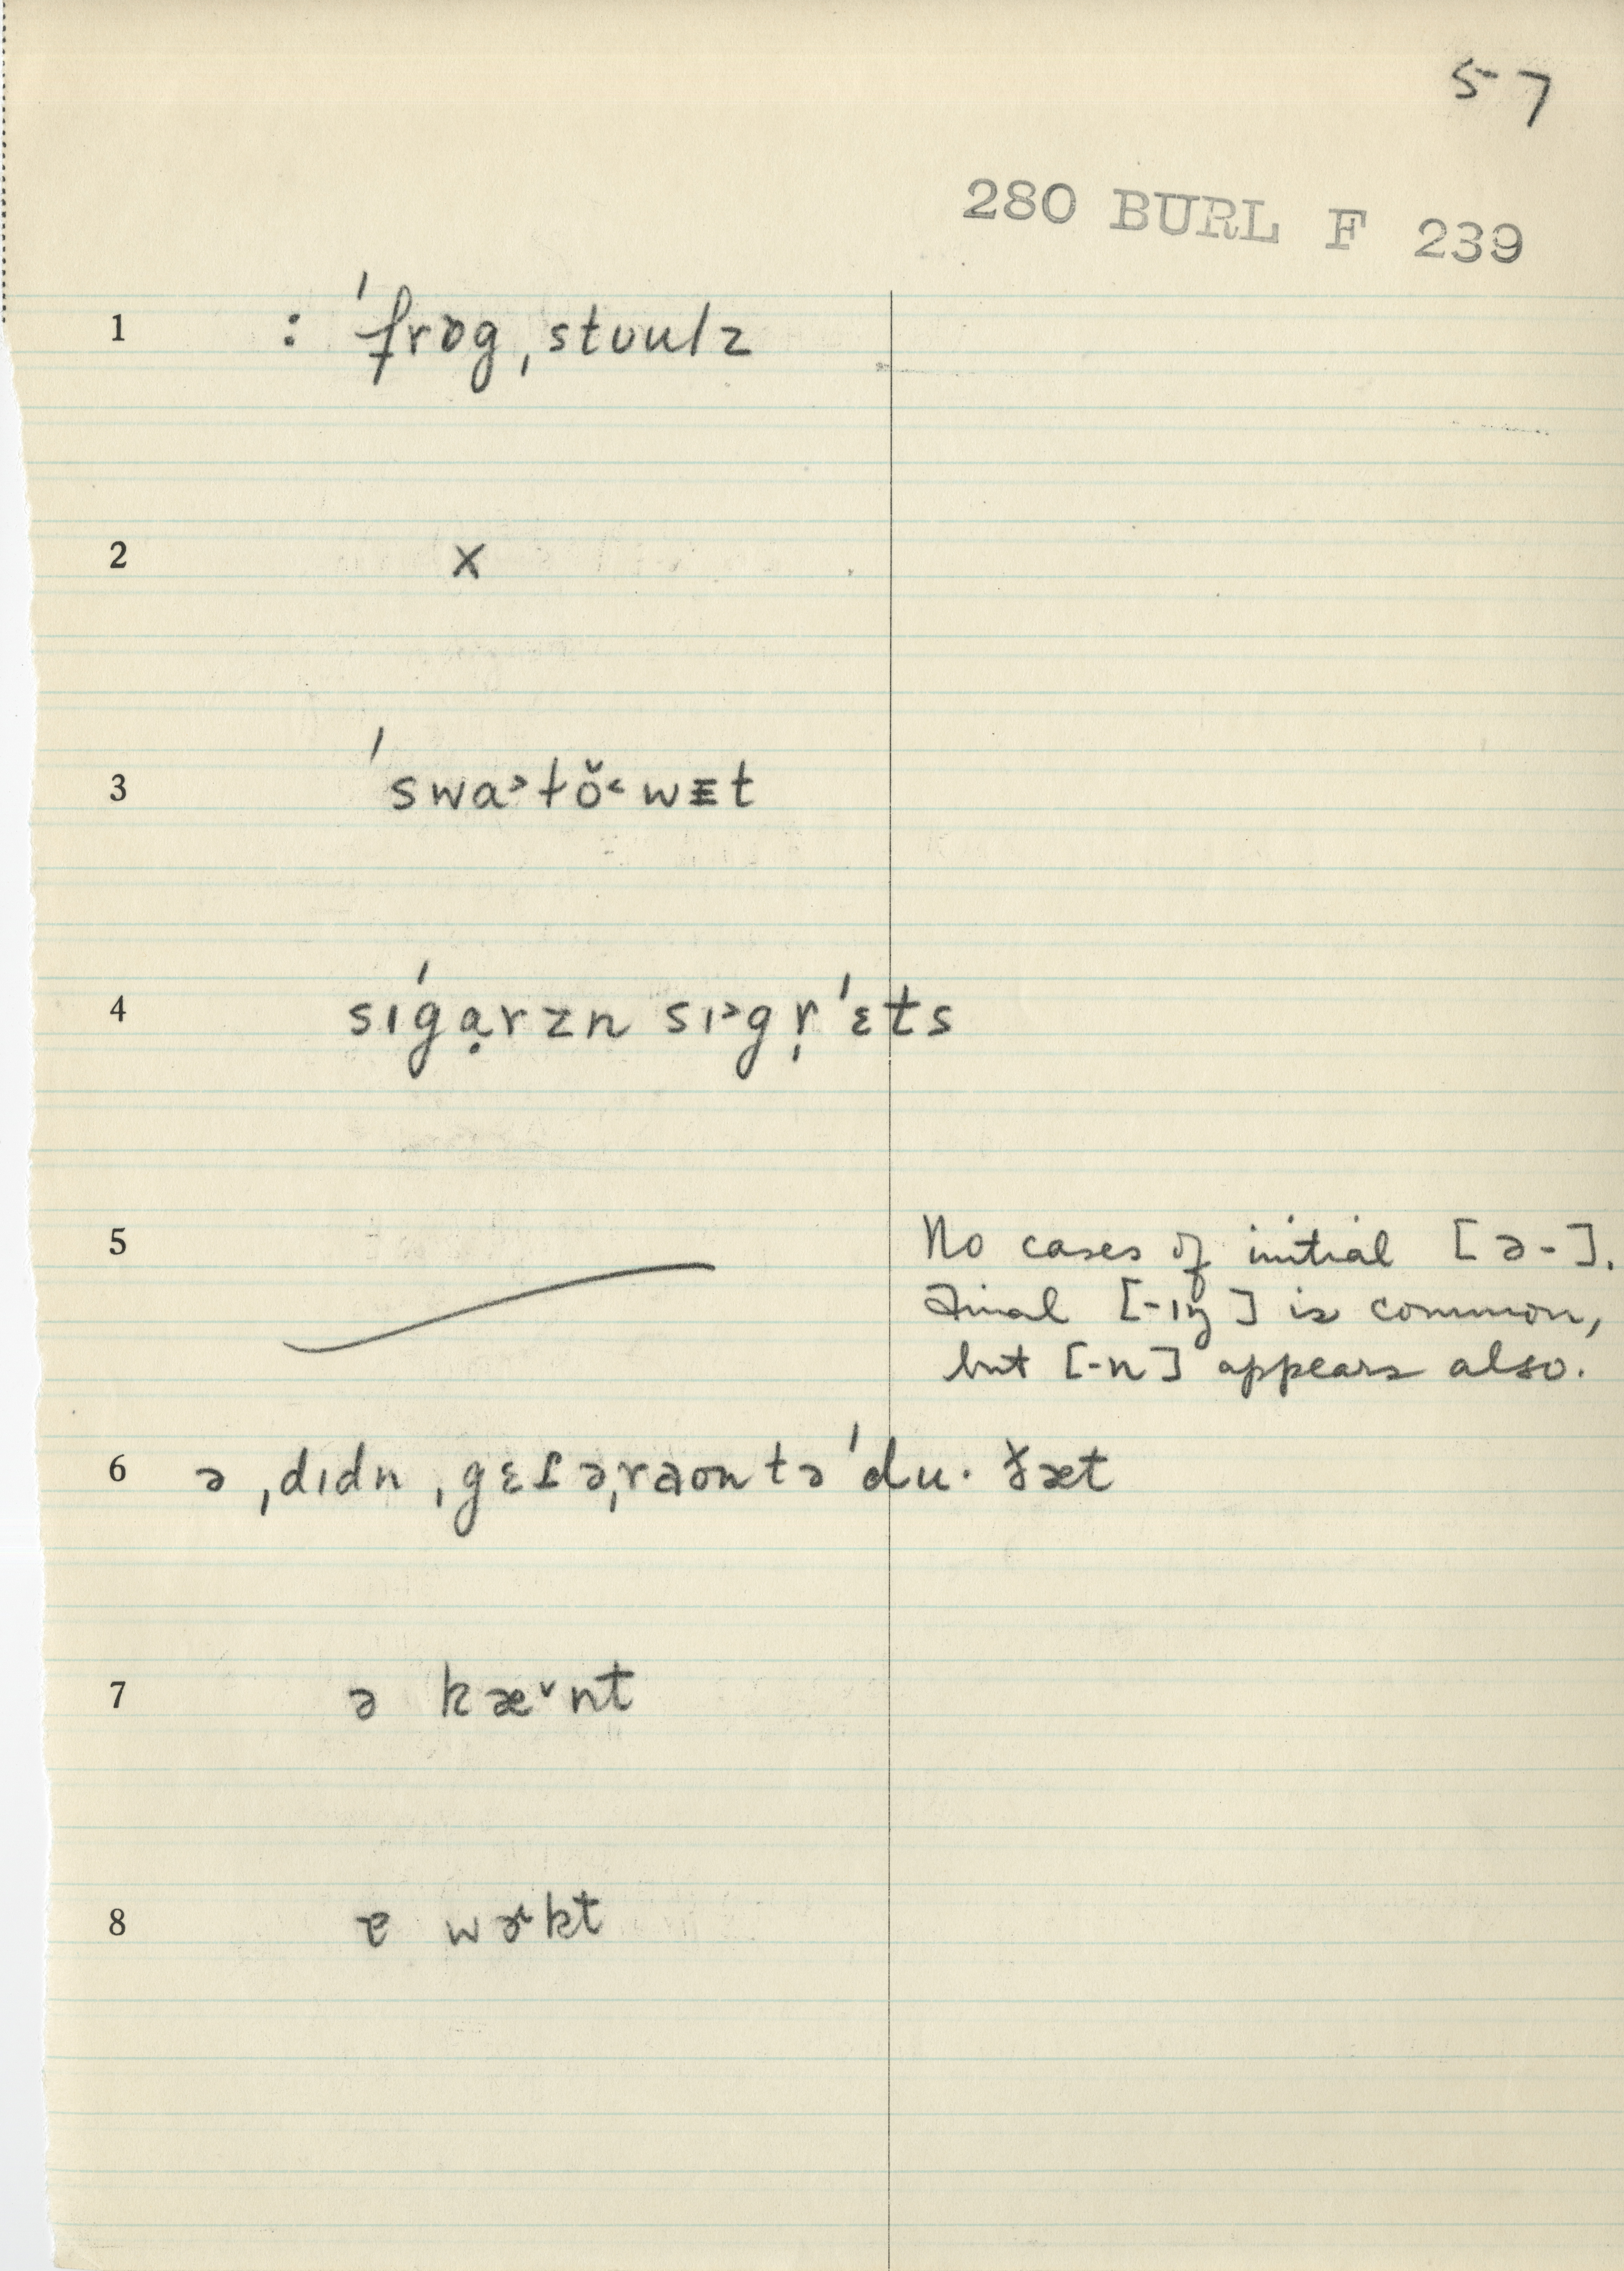 57
280 BURL F 239
1 : ˈfrɒgˌstuulz
2 x
3 ˈswa˃tŏ˂wᵻt
4 sɪˈgạrzn sɪ˃gr̩ˈɛts
5 No cases of initial [ə-].
Final [-ɪŋ] is common,
but [-n] appears also.
6 ə ˌdɪdn ˌgɛt əˌraʊn tə ˈdu· ðæt
7 ə kæˇnt
8 ɐ wɚkt